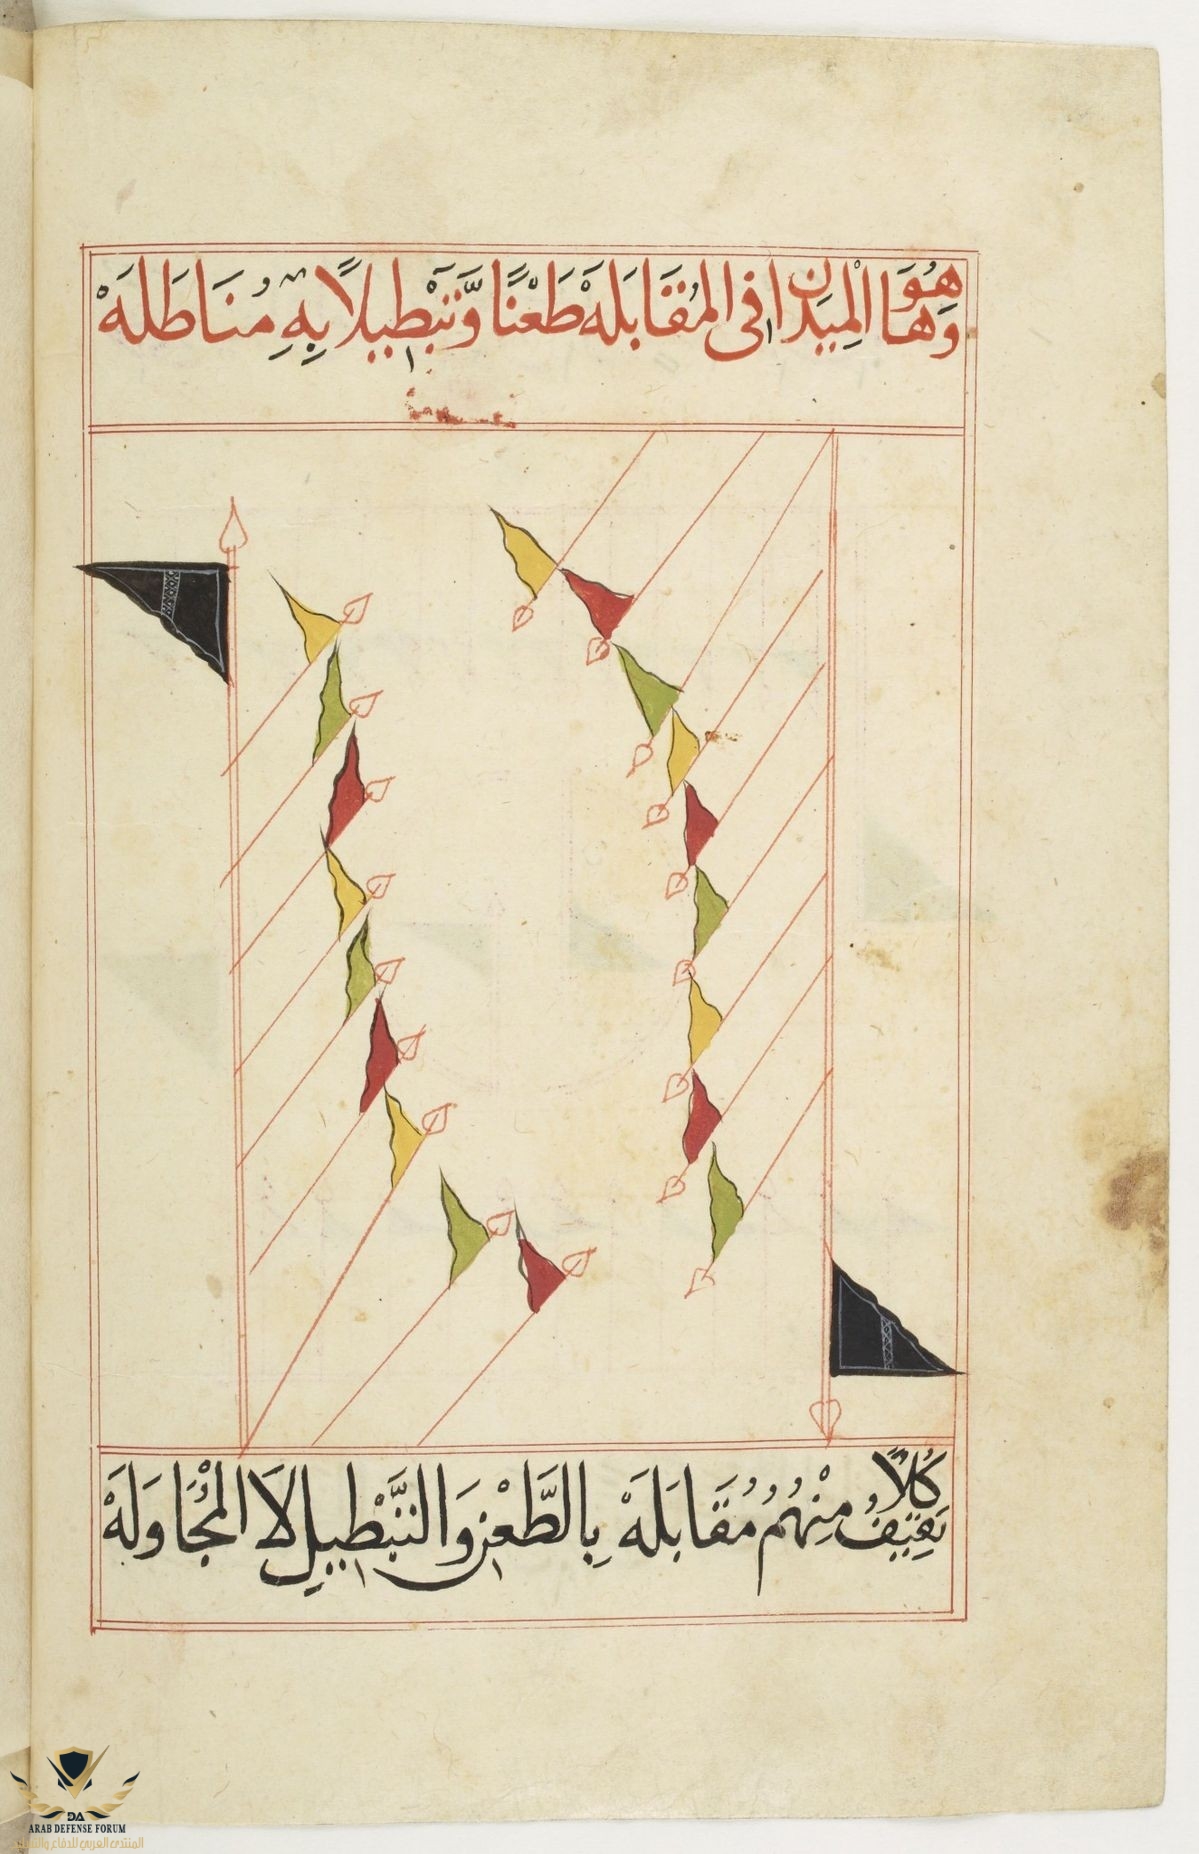 وَهَا هُوَ الْمِيَدَان فى المُقَابَلَهْ طَعْنًا وَّتَبْطِيلًا بِهِ مُنَاطَلَهْ
كُلًّا يَقِيفُ مِنْهُمُ مُقَابَلَهْ بِالطَّعْنِ وَالتَّبْطِيلِ لَا الْمُجَاوَلَهْ
DA
ARAB DEFENSE FORUM
المنتدى العربي للدفاع والتسليح